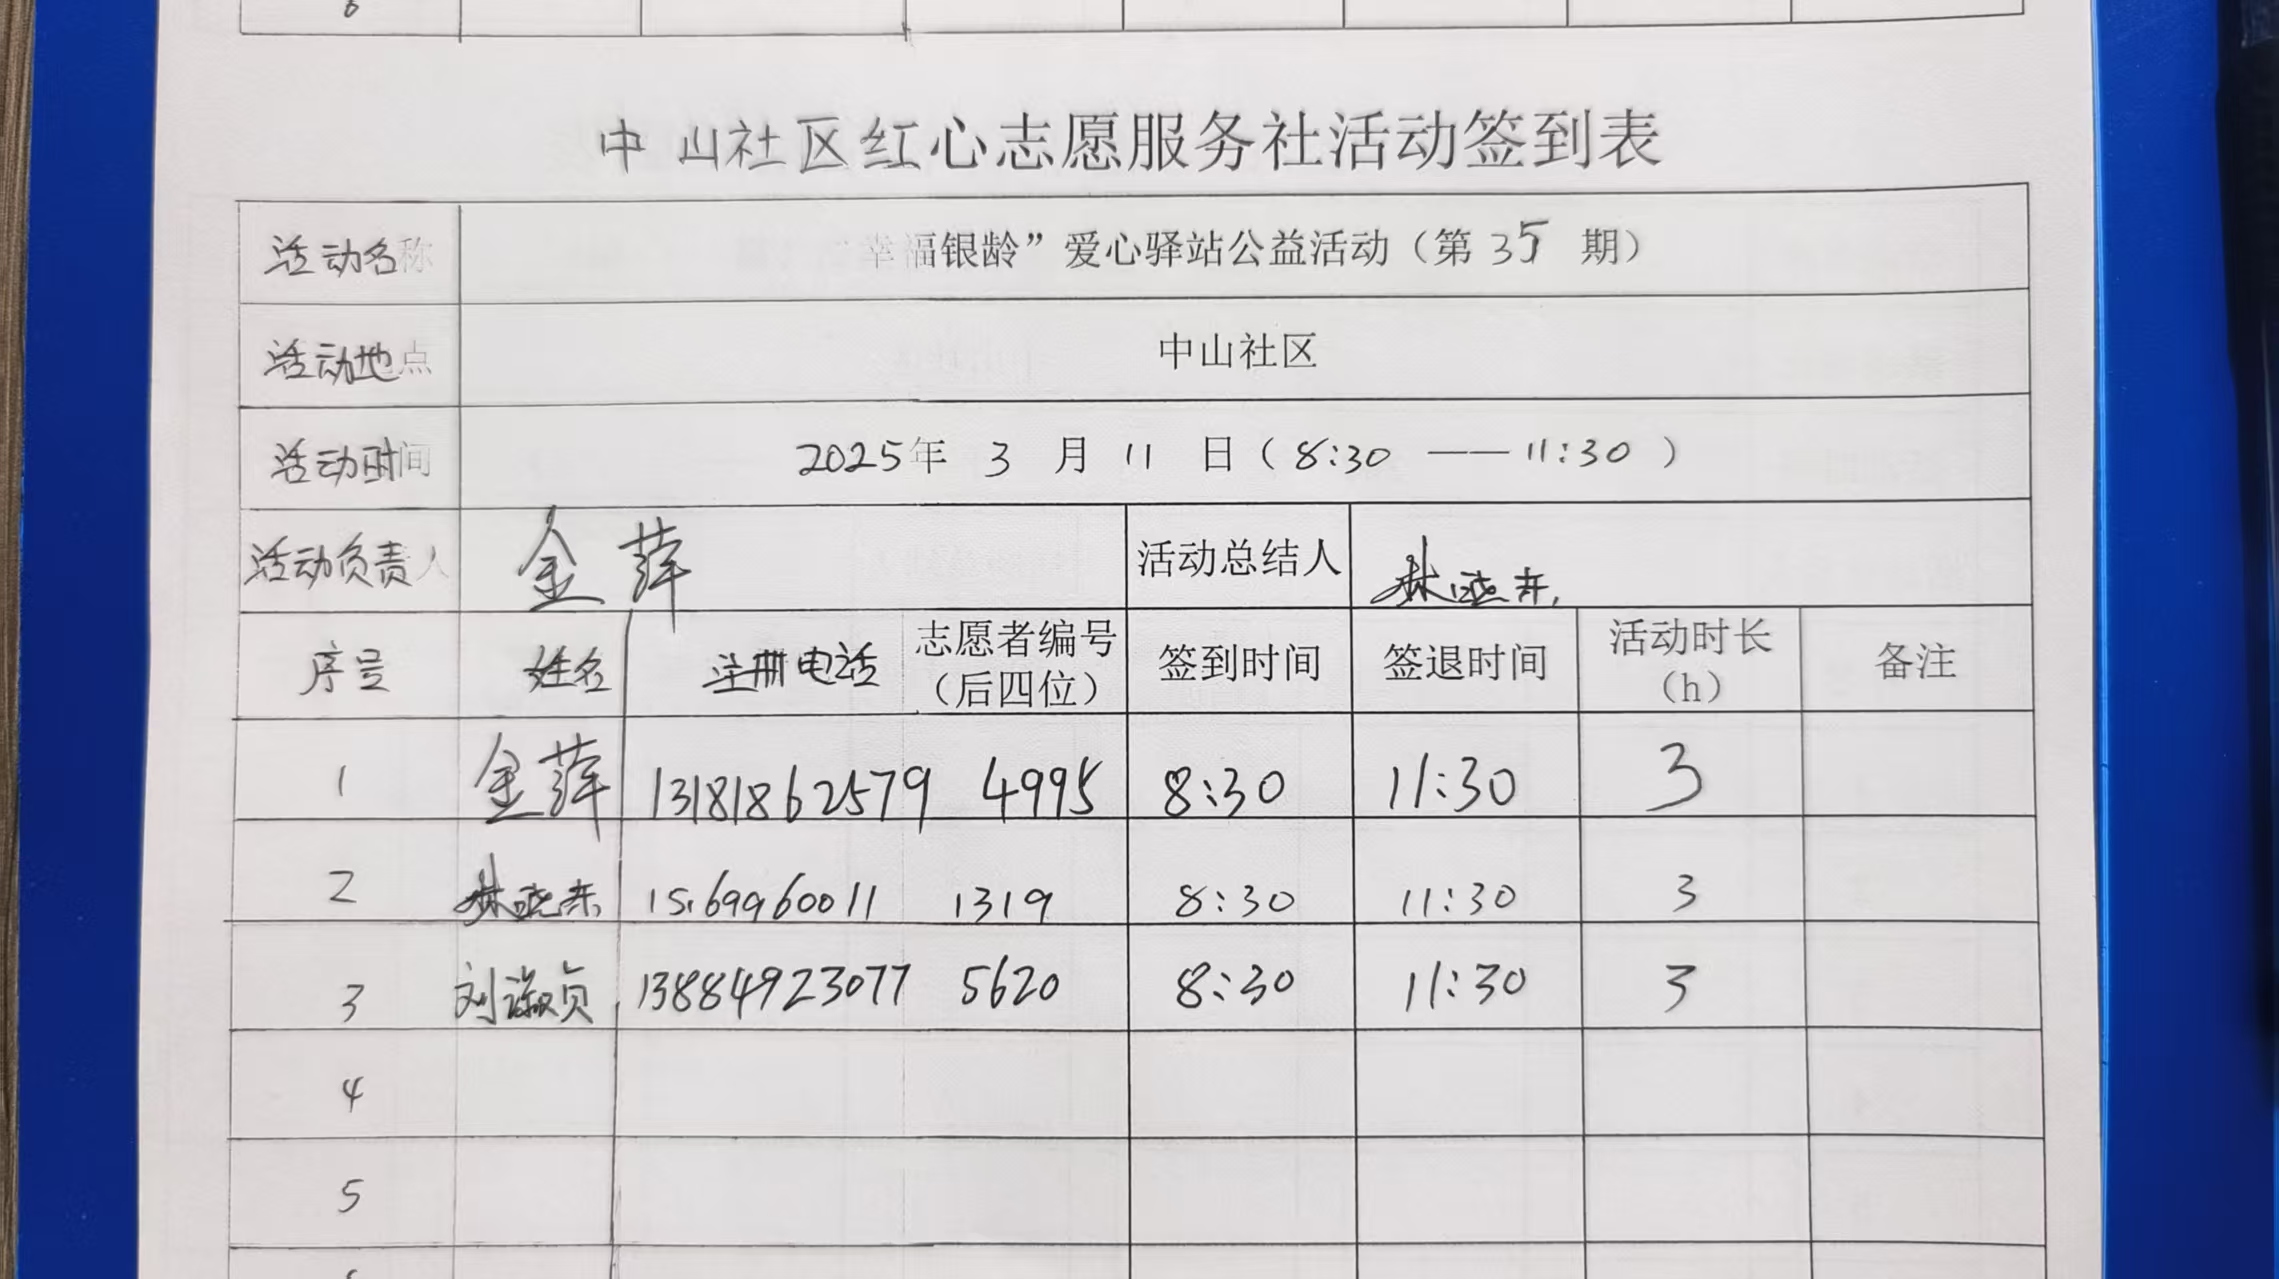 6
中山社区红心志愿服务社活动签到表
活动名称 幸福银龄”爱心驿站公益活动（第 35 期）
活动地点 中山社区
活动时间 2025年 3 月 11 日（8:30 ——11:30 ）
活动负责人 金萍 活动总结人 林晓东
序号 姓名 注册电话 志愿者编号（后四位） 签到时间 签退时间 活动时长（h） 备注
1 金萍 13181862579 4995 8:30 11:30 3
2 林晓东 15169960011 1319 8:30 11:30 3
3 刘淑贞 13884923077 5620 8:30 11:30 3
4
5